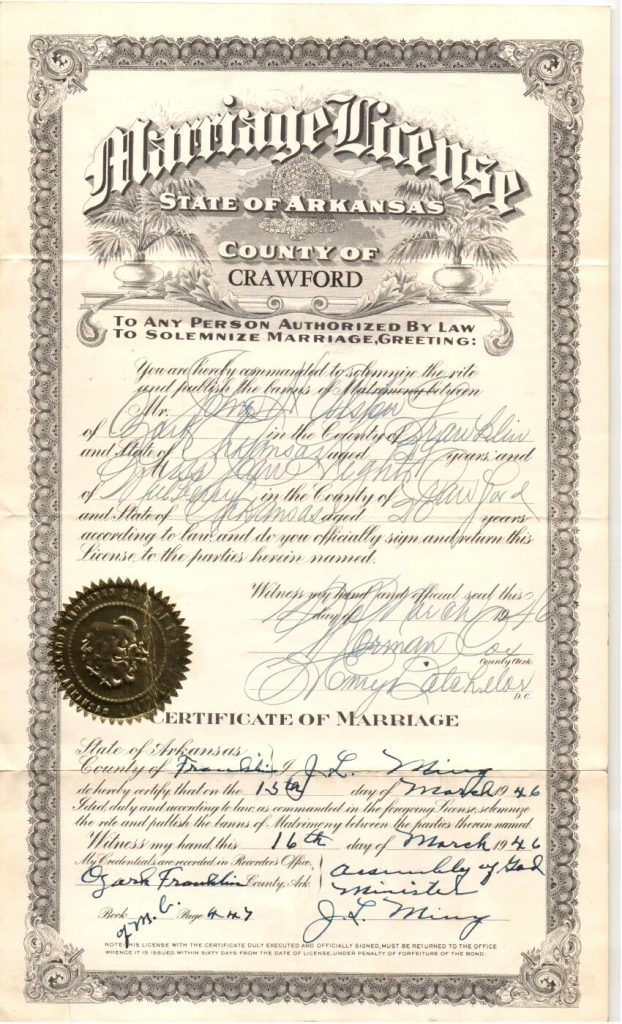 Marriage License
STATE OF ARKANSAS
COUNTY OF
CRAWFORD
TO ANY PERSON AUTHORIZED BY LAW
TO SOLEMNIZE MARRIAGE, GREETING:
You are hereby commanded to solemnize the rite
and publish the banns of Matrimony between
Mr.
of Ozark in the County of Franklin
and State of Arkansas aged years, and
Miss
of Mulberry in the County of Crawford
and State of Arkansas aged years
according to law, and do you officially sign and return this
License, to the parties herein named.
Witness my hand and official seal this
day of March 1946
Herman Cox
County Clerk
Batchelor
D.C.
CERTIFICATE OF MARRIAGE
State of Arkansas
County of Franklin } I, J. L. Ming
do hereby certify that on the 15th day of March 1946
I did, duly and according to law, as commanded in the foregoing License, solemnize
the rite and publish the banns of Matrimony between the parties therein named.
Witness my hand, this 16th day of March 1946
My Credentials are recorded in Recorder's Office,
Ozark Franklin County, Ark.
Assembly of God
Minister
Book of M. C. Page 447
J. L. Ming
NOTE-THIS LICENSE WITH THE CERTIFICATE DULY EXECUTED AND OFFICIALLY SIGNED, MUST BE RETURNED TO THE OFFICE
WHENCE IT IS ISSUED WITHIN SIXTY DAYS FROM THE DATE OF LICENSE, UNDER PENALTY OF FORFEITURE OF THE BOND.